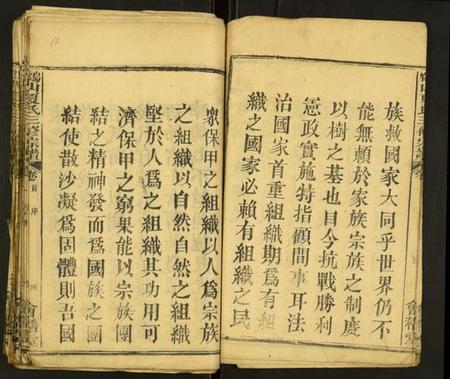 族救國家大同乎世界仍不
能無賴於家族宗族之制度
以樹之基也目今抗戰勝利
憲政實施特指顧間事耳法
治國家首重組織期爲有組
織之國家必賴有組織之民
衆保甲之組織以人爲宗族
之組織以自然自然之組織
堅於人爲之組織其功用可
濟保甲之窮果能以宗族團
結之精神發而爲國族之團
結使散沙凝爲固體則吾國
三修宗譜
卷首
序